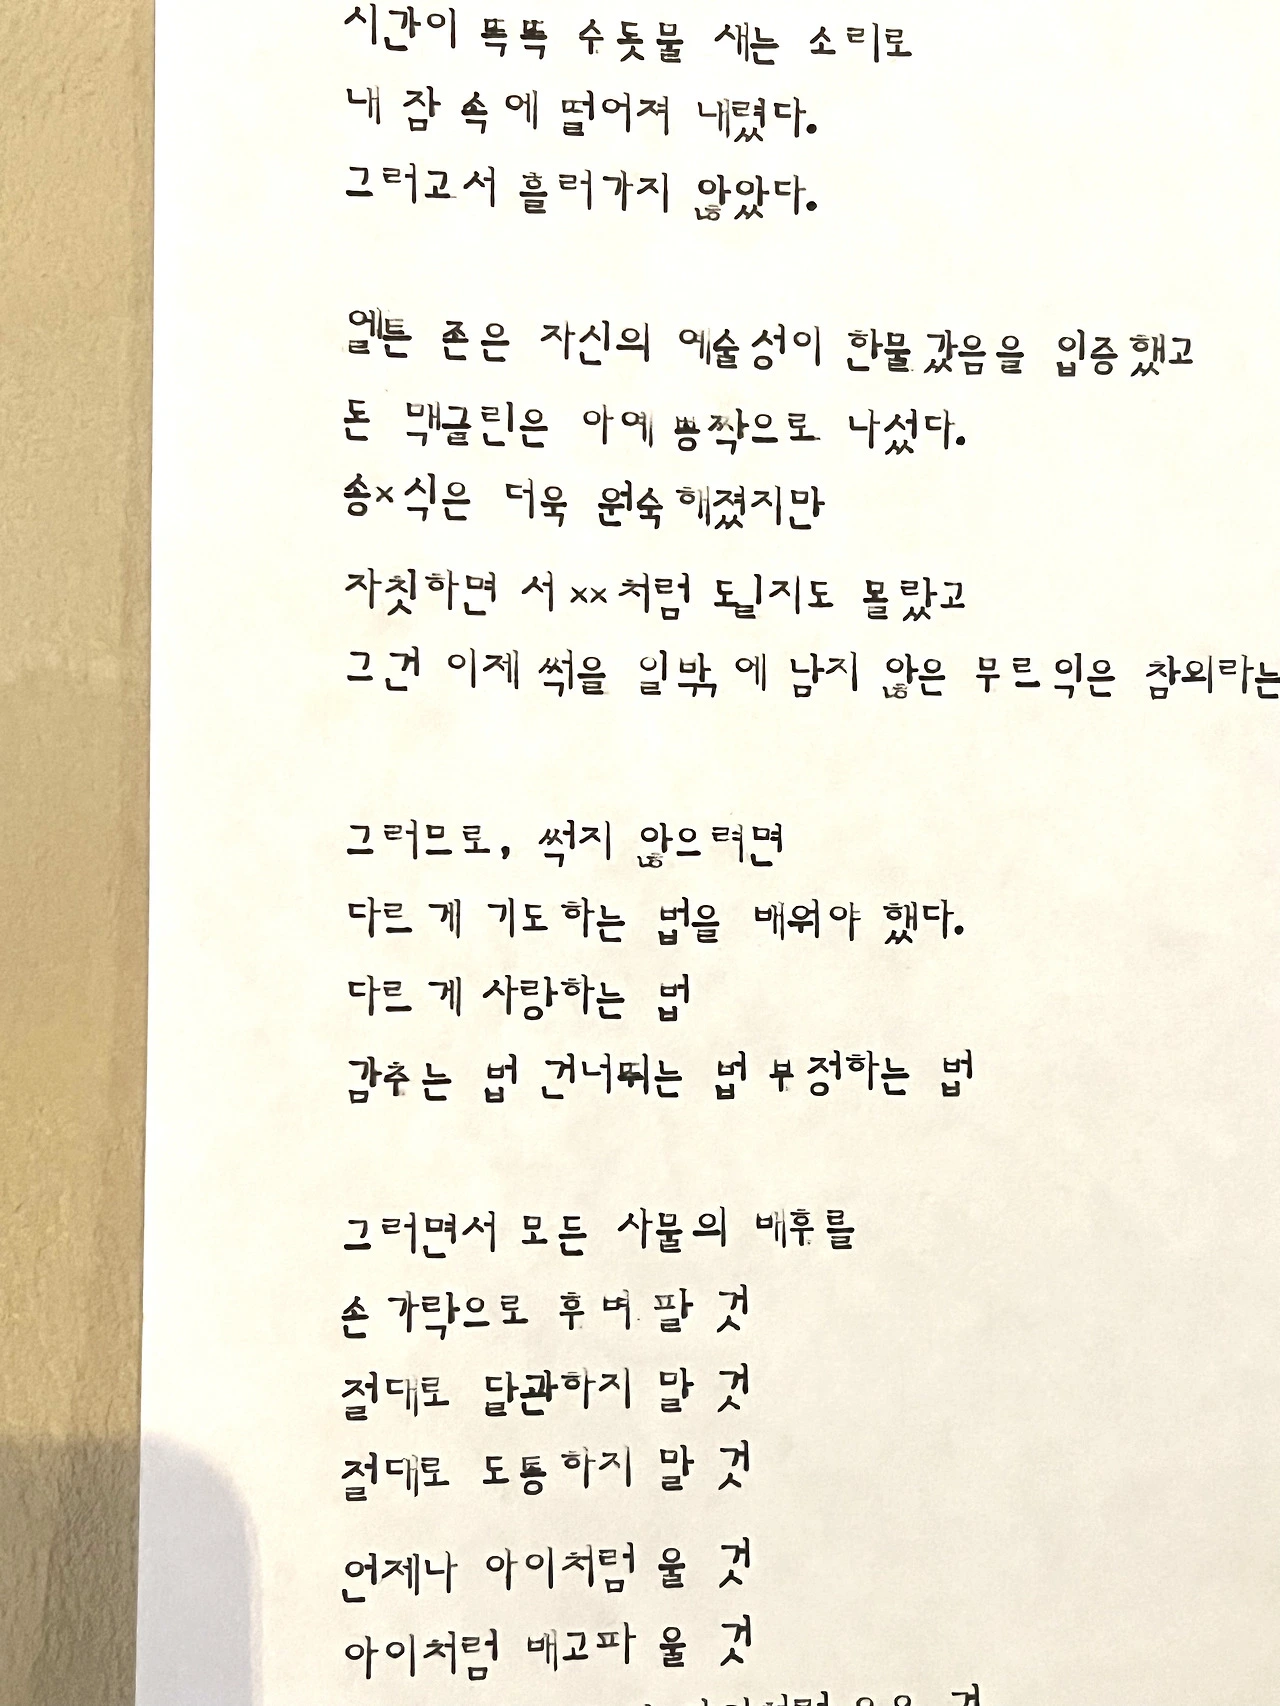 시간이 똑똑 수돗물 새는 소리로
내 잠 속에 떨어져 내렸다.
그러고서 흘러가지 않았다.
엘튼 존은 자신의 예술성이 한물갔음을 입증했고
돈 맥글린은 아예 뽕짝으로 나섰다.
송×식은 더욱 원숙해졌지만
자칫하면 서××처럼 될지도 몰랐고
그건 이제 썩을 일밖에 남지 않은 무르익은 참외라는
그러므로, 썩지 않으려면
다르게 기도하는 법을 배워야 했다.
다르게 사랑하는 법
감추는 법 건너뛰는 법 부정하는 법
그러면서 모든 사물의 배후를
손가락으로 후벼 팔 것
절대로 달관하지 말 것
절대로 도통하지 말 것
언제나 아이처럼 울 것
아이처럼 배고파 울 것